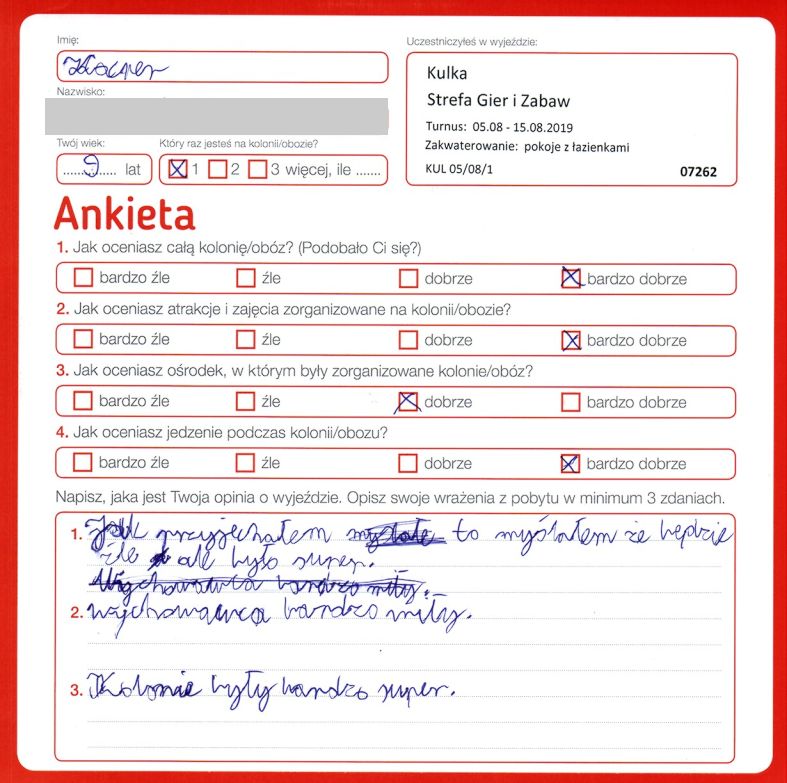 Imię:
Kacper
Uczestniczyłeś w wyjeździe:
Kulka
Strefa Gier i Zabaw
Turnus: 05.08 - 15.08.2019
Zakwaterowanie: pokoje z łazienkami
KUL 05/08/1 07262
Nazwisko:
Twój wiek:
9 lat
Który raz jesteś na kolonii/obozie?
1 2 3 więcej, ile .......
Ankieta
1. Jak oceniasz całą kolonię/obóz? (Podobało Ci się?)
bardzo źle źle dobrze bardzo dobrze
2. Jak oceniasz atrakcje i zajęcia zorganizowane na kolonii/obozie?
bardzo źle źle dobrze bardzo dobrze
3. Jak oceniasz ośrodek, w którym były zorganizowane kolonie/obóz?
bardzo źle źle dobrze bardzo dobrze
4. Jak oceniasz jedzenie podczas kolonii/obozu?
bardzo źle źle dobrze bardzo dobrze
Napisz, jaka jest Twoja opinia o wyjeździe. Opisz swoje wrażenia z pobytu w minimum 3 zdaniach.
1. Jak przyjechałem to myślałem że będzie
źle ale było super.
Wychowawca bardzo miły.
2. wychowawca bardzo miły.
3. Kolonie były bardzo super.